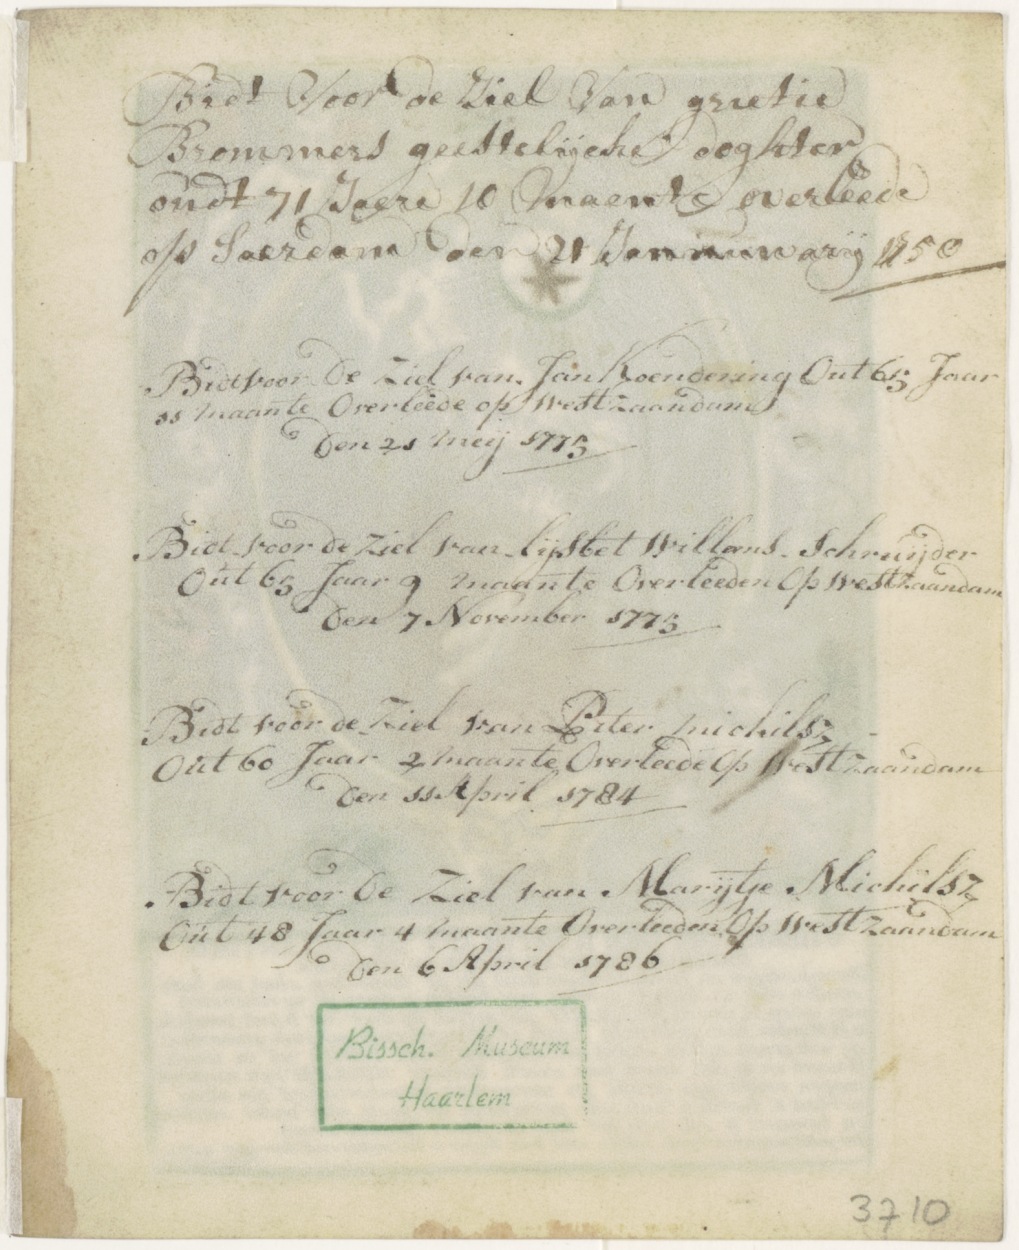 Bidt Voor de Ziel Van grietie
Brommers geestelijcke doghter
oudt 71 Jaere 10 Maente overleede
op Saerdam den 21 Jannuwarij 1750
Bidt voor De Ziel van Jan Koendering Out 65 Jaar
11 maante Overleede op westzaandam
Den 21 Meij 1775
Bidt voor de Ziel van lijsbet Willems Schruijder
Out 65 Jaar 9 maante Overleeden Op westzaandam
Den 7 November 1775
Bidt voor de Ziel van Piter michilsz
Out 60 Jaar 2 maante Overleede Op Westzaandam
Den 11 April 1784
Bidt voor De Ziel van Marijtje Michilsz
Out 48 Jaar 4 maante Overleeden Op westzaandam
Den 6 April 1786
Bissch. Museum
Haarlem
3710